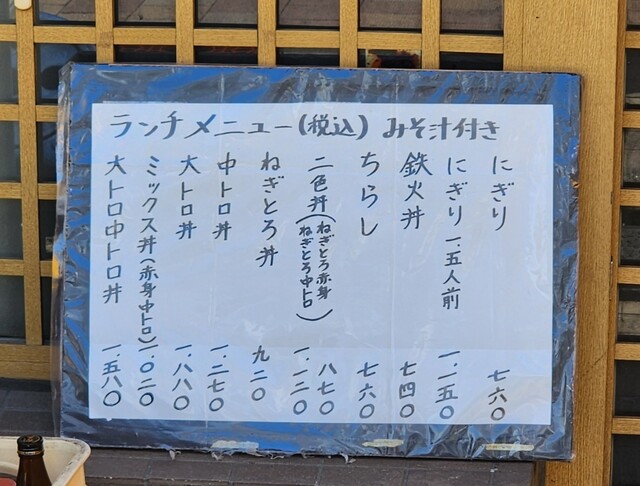 ランチメニュー(税込) みそ汁付き
にぎり 七六〇
にぎり一.五人前 一.一五〇
鉄火丼 七四〇
ちらし 七六〇
二色丼(ねぎとろ赤身 八七〇
ねぎとろ中トロ) 一.一二〇
ねぎとろ丼 九二〇
中トロ丼 一.二七〇
大トロ丼 一.八八〇
ミックス丼(赤身中トロ) 一.〇二〇
大トロ中トロ丼 一.五八〇